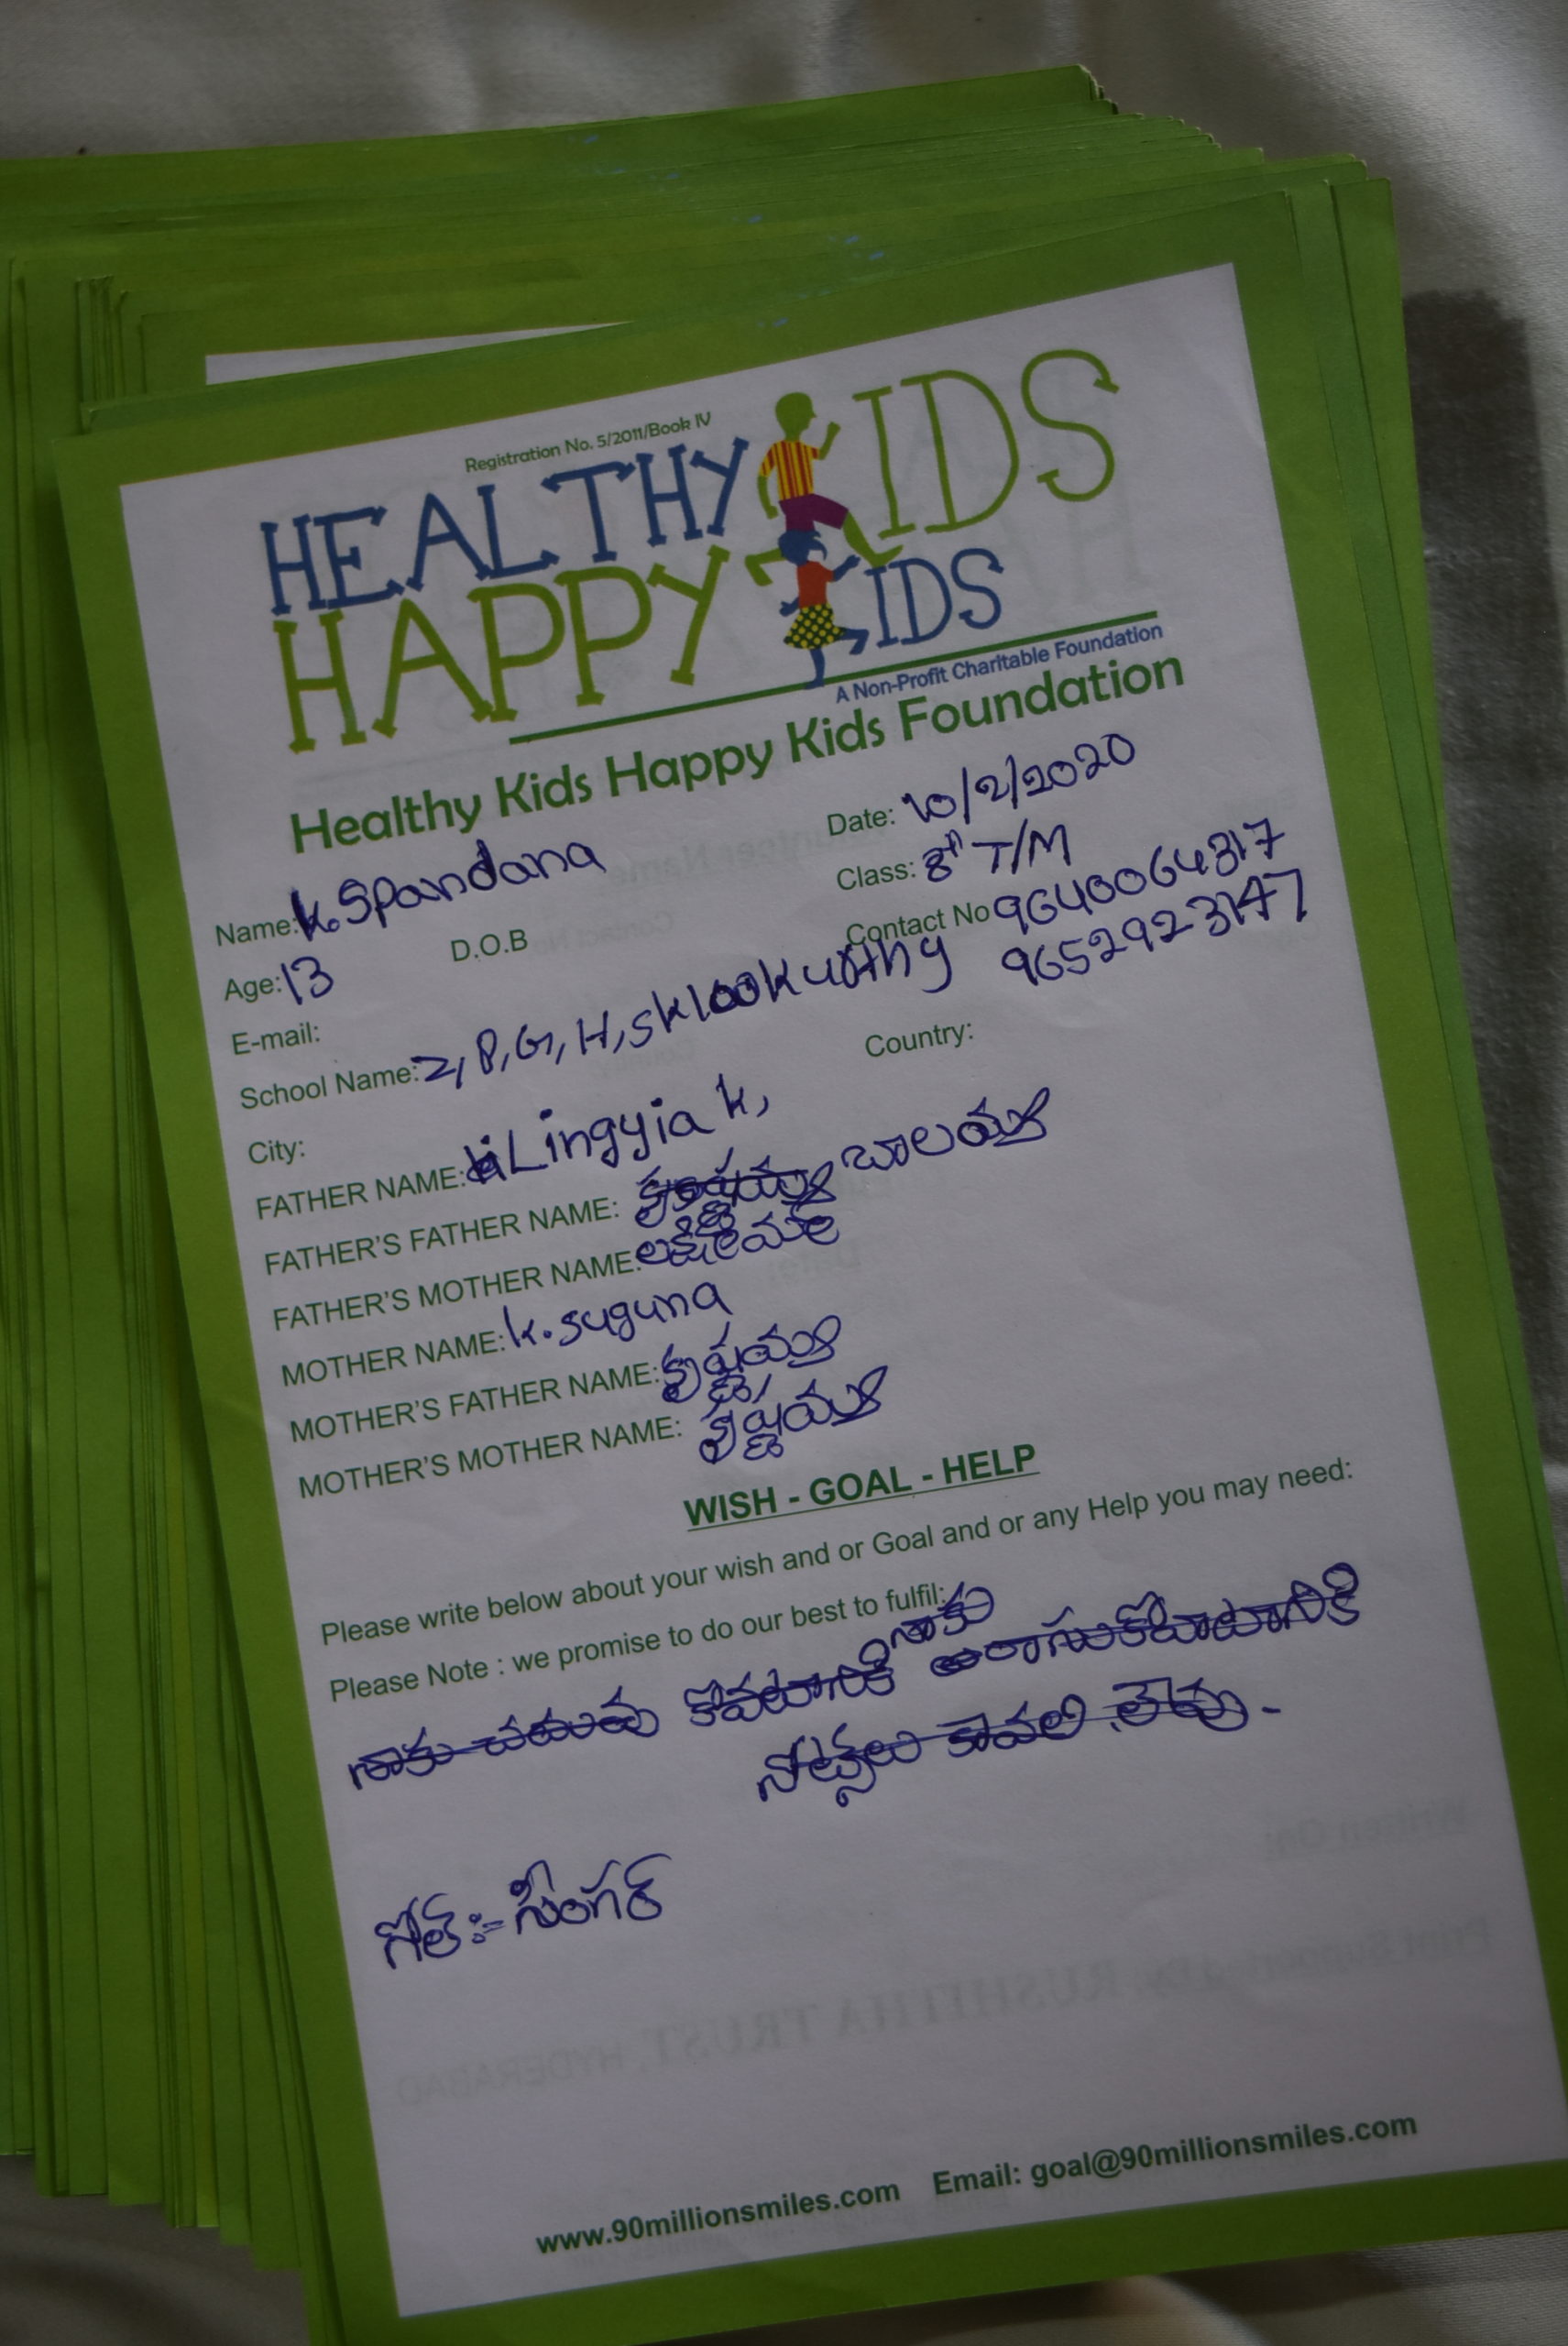 Registration No. 5/2011/Book IV
HEALTHY KIDS
HAPPY KIDS
A Non-Profit Charitable Foundation
Healthy Kids Happy Kids Foundation
Date: 10/2/2020
Name: K. Spandana
Class: 8th T/M
Age: 13 D.O.B
Contact No 9640064317
9652923147
E-mail:
School Name: Z, P, G, H, S
City: Country:
FATHER NAME: Lingyia K,
FATHER'S FATHER NAME: బాలయ్య
FATHER'S MOTHER NAME: లక్ష్మమ్మ
MOTHER NAME: K. suguna
MOTHER'S FATHER NAME: కృష్ణయ్య
MOTHER'S MOTHER NAME: కృష్ణయ్య
WISH - GOAL - HELP
Please write below about your wish and or Goal and or any Help you may need:
Please Note : we promise to do our best to fulfil:
నాకు
నాకు చదువు కోవటానికి
కావలి లేవు.
గోల్:- సింగర్
www.90millionsmiles.com Email: goal@90millionsmiles.com